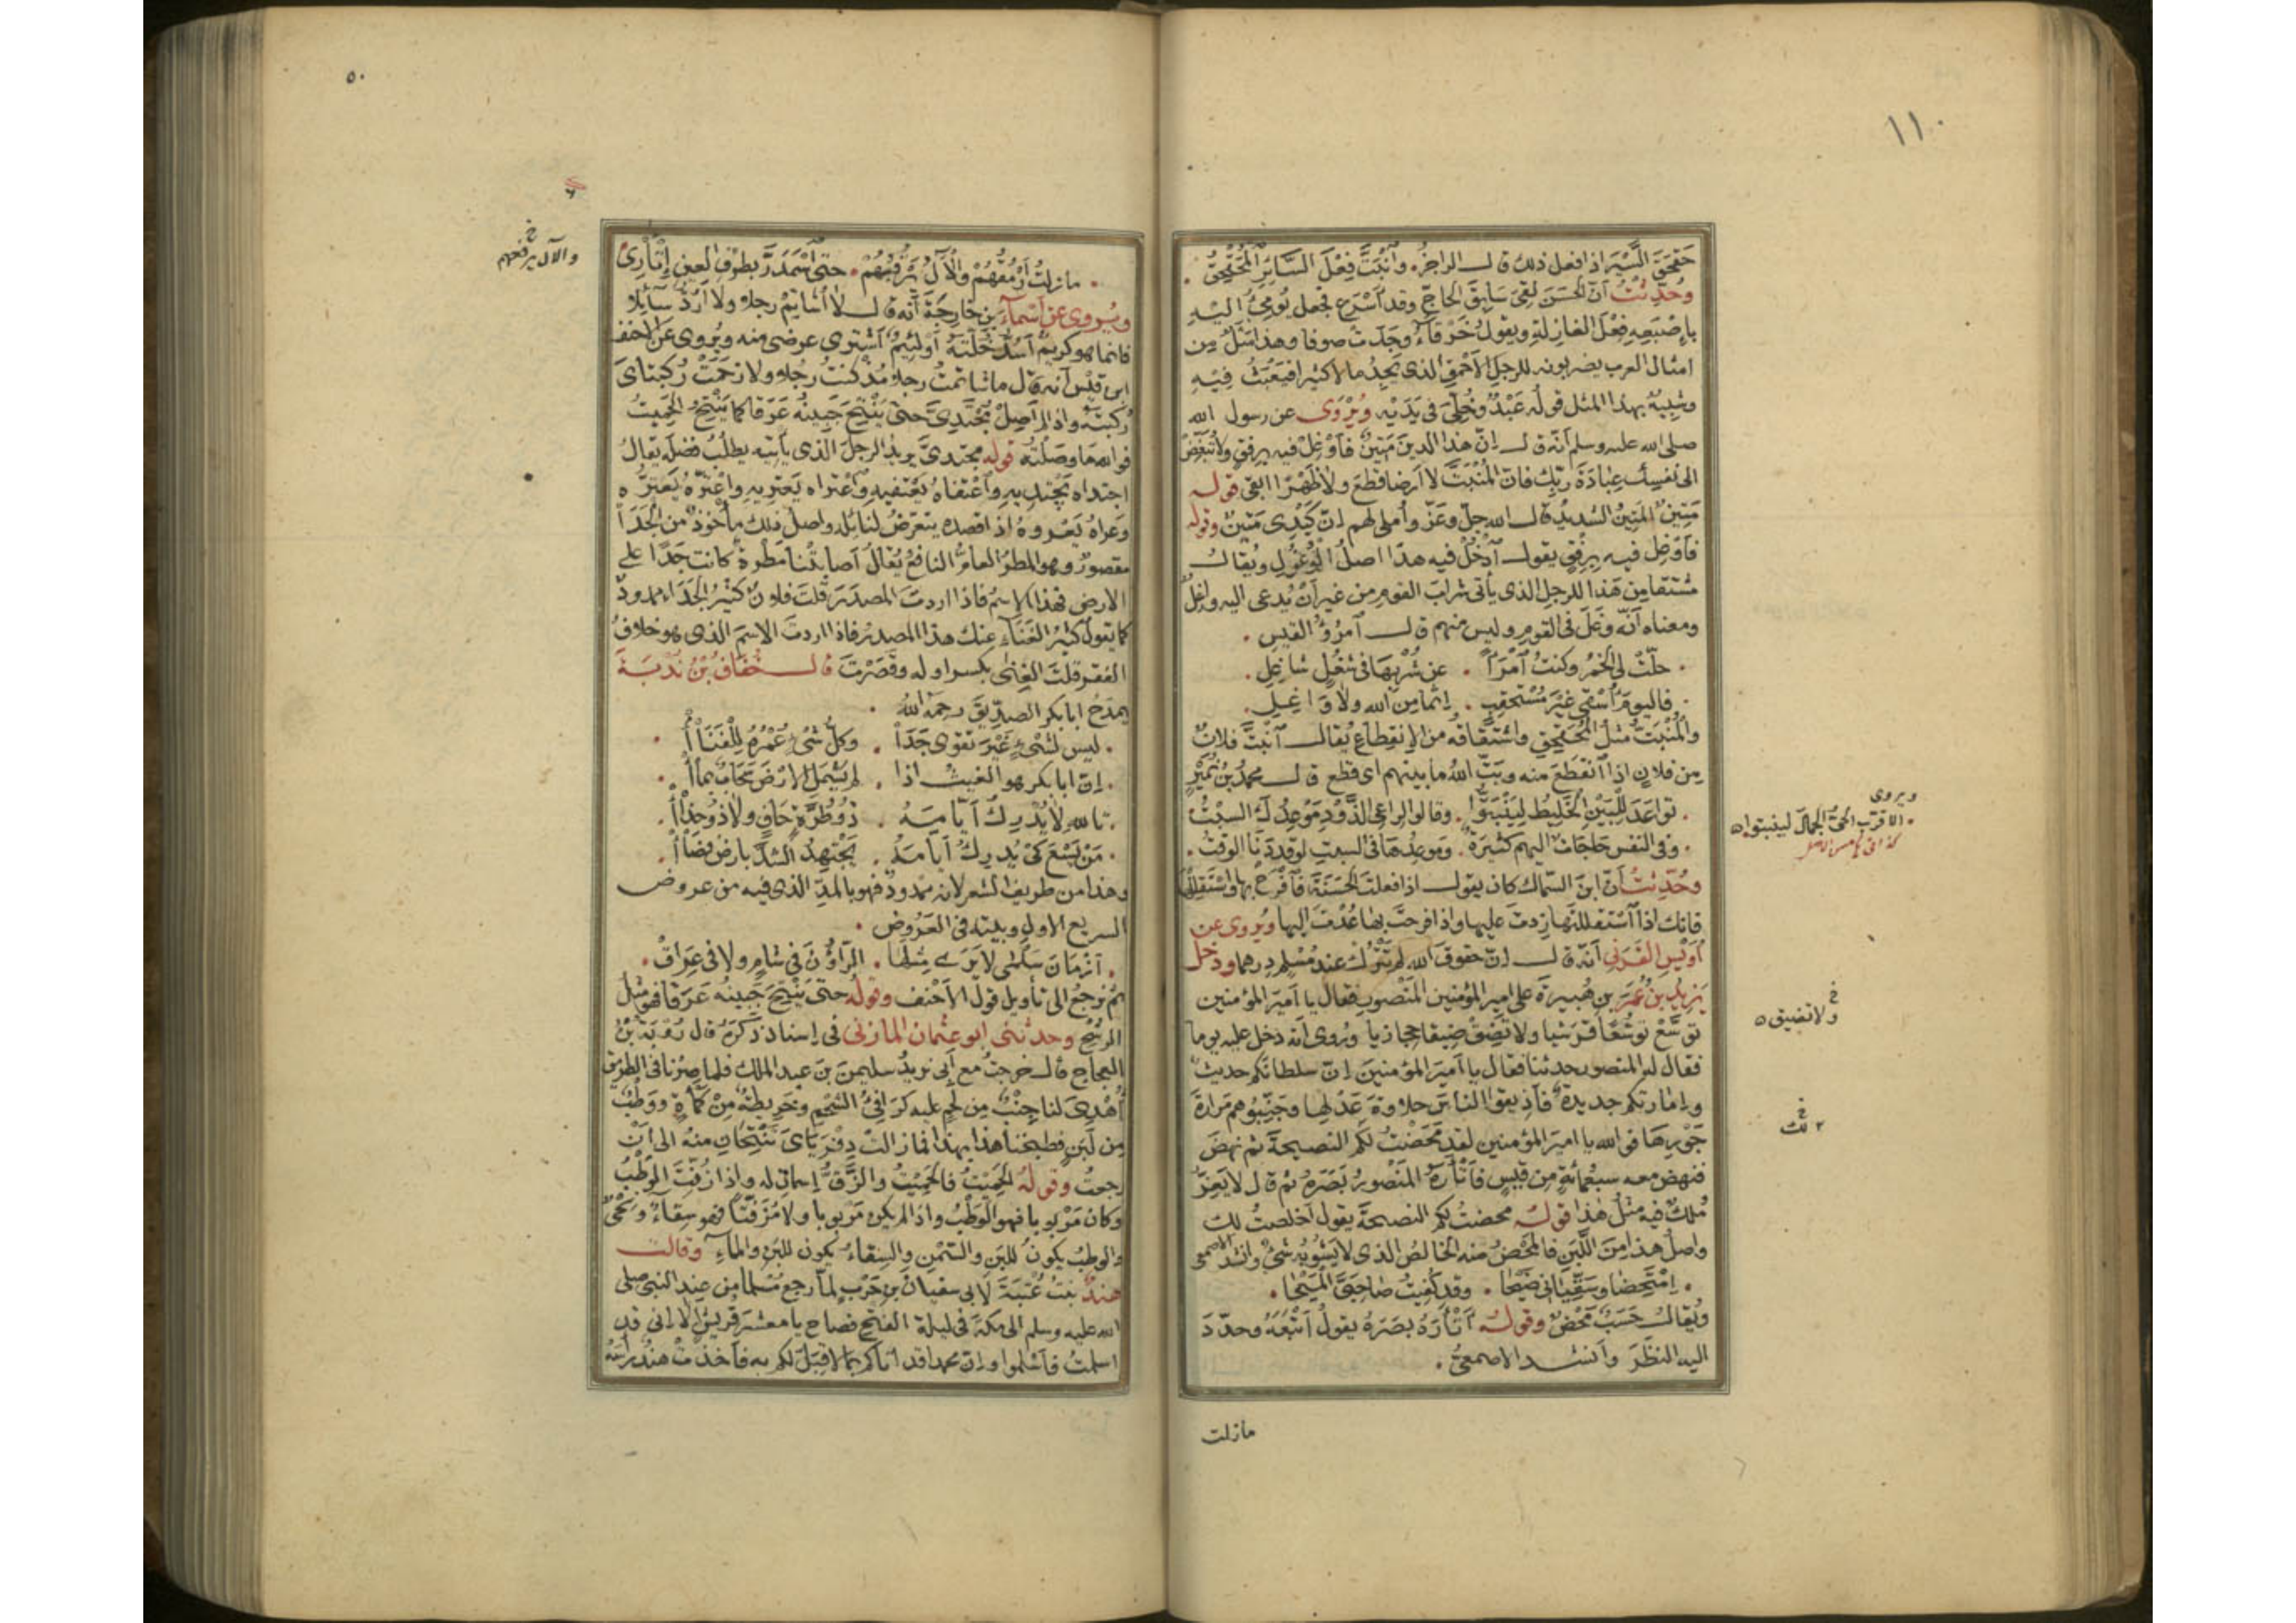 ١١٠
حَقْحَقَ السَّيْرَ اذا فعل ذلك قال الراجز. وَانْبَتَّ فِعْلَ السَّائِرِ الْمُحَقْحِقِ .
وحُدِّثْتُ أنّ الحَسَنَ لقىَ سَابِقَ الحاجِّ وقد أَسْرَعَ فجعل يُومِئُ اليْهِ
باِصْبَعِهِ فِعْلَ الغازِلةِ ويقولُ خَرْقَاءُ وجَدَتْ صوفا وهذا مَثَلٌ مِن
امثال العرب يضربونه للرجلِ الأحْمَقِ الذى يَجِدُ مالا كثيرا فيَعْبَثُ فيْهِ
وشبيهٌ بهذا المثل قولُه عَبْدٌ وخُلِّىَ فى يَدَيْهِ ويُرْوَى عن رسول الله
صلى الله عليه وسلم أنّه قال إنّ هذا الدينَ مَتِينٌ فأوْغِلْ فيه برِفقٍ ولا تُبَغِّضْ
الى نفسِك عِبَادَةَ رَبِّك فانّ المُنْبَتَّ لا ارضا قطعَ ولا ظَهْرًا ابقى قوله
مَتِينٌ المَتِينُ الشديدُ قال الله جلّ وعَزّ وأملى لهم إنّ كَيْدِى مَتِينٌ وقوله
فأوْغِل فيه برِفْقٍ يقول أدْخُلْ فيه هذا اصلُ الْوُغُولِ ويُقال
مُشْتقا من هَذا للرجلِ الذى يأتى شرابَ القومِ من غير أنْ يُدعى اليه واغلٌ
ومعناه أنّه وَغَلَ فى القومِ وليس منهم قال أمرُؤُ القيس .
. حلّتْ لىَ الخمرُ وكنتُ أمْرَأً . عن شُرْبِها فى شغُلٍ شاغِلِ .
. فاليومَ أُسْقَى غَيْرَ مُسْتَحقِبٍ . إثما من الله ولا وَاغِلِ .
والمُنْبَتُّ مثلُ المُحَقحِقِ واشتقاقُه من الانقطاعِ يُقال أنْبَتَّ فلانٌ
من فلانٍ اذا أنقطعَ منه وبَتَّ اللهُ ما بينهم اى قطع قال محمدُ بنُ نُمَيْرٍ
. تواعَدَ لِلْبَيْنِ الخَلِيطُ لِيَنْبَتُّوا . وقالوا لراعى الذَّوْدِ مَوْعِدُك السبتُ
. وفى النفسِ حاجَاتٌ اليهم كثيرَةٌ . ومَوعِدُها فى السبتِ لو قد دَنَا الوقتُ .
وحُدِّثتُ أنّ ابنَ السّماك كان يقول اذا فعلتَ الحَسَنَةَ فأفْرَحْ بها واسْتَقلِلْها
فانك اذا أسْتقللتَها زدتَ عليها واذا فرحتَ بها عُدْتَ اليها ويُروى عن
أُوَيْسِ القَرَنِى أنّه قال إنّ حقوقَ الله لم تَتْرُكْ عند مُسْلمٍ درهما ودخل
يَزِيدُ بنُ عُمَرَ بنِ هُبيرةَ على اميرِ المؤمنين المَنْصورِ فقال يا أميرَ المؤمنين
توسَّعْ توسُّعًا قرشيا ولا تَضِقْ ضيقا حجازيا ويُروى أنه دخل عليه يوما
فقال له المنصور حدثنا فقال يا أميرَ المؤمنين إنّ سلطانَكم حديثٌ
وإمارتَكم جديدةٌ فأذيقوا الناسَ حلاوةَ عَدْلِها وجَنِّبوهم مَرارةَ
جَوْرِها فوالله يا اميرَ المؤمنين لقد مَحَضْتُ لكم النصيحةَ ثم نهضَ
فنهض معه سبْعُمائةٍ من قيسٍ فأتْأَرَهُ المَنْصورُ بَصَرَهُ ثم قال لا يَعِزُّ
مُلكٌ فيه مثلُ هذا قوله محضتُ لكم النصيحةَ يقول أخلصتُ لك
واصلُ هذا من اللَّبَنِ فالمحْضُ منه الخالصُ الذى لا يَشوبُه شئٌ وانشد الاصمعى
. إمْتَحِضا وسَقِّيَانى ضَيْحَا . وقد كَفيتُ صاحِبَىَّ المَيْحَا .
ويُقال حَسَبٌ مَحْضٌ وقوله أتْأَرَهُ بصَرَهُ يقولُ أتْبَعَهُ وحدّدَ
اليه النظَرَ وأنشد الاصمعىُّ .
مازلت
ويروى
. الا قرّب الحىُّ الجمالَ لينبتوا ٥
خ
ولا تضيق ٥
خ
٢ لك
٥٠
خ
والآل يرفعهم
. مازلتُ أرمُقُهُمْ والآلُ يَرقُبُهُمْ . حتى أسْمَدَرَّ بطَرْفِ العينِ إتْآرِى
ويُروى عن أسْمآءَ بنِ خارِجَةَ أنّه قال لا أُشاتِمُ رجلا ولا أرُدُّ سآئِلا
فانما هو كريمٌ أسُدُّ خَلَّتَهُ أو لئيمٌ أشترى عرضى منه ويُروى عن الاحنف
ابن قيْس أنه قال ما شاتمتُ رجلا مُذْ كنتُ رجُلا ولا زحَمَتْ رُكبتاىَ
رُكبتَيْهِ واذا لم أصِلْ مُجْتَدِىَّ حتى يَنْتِحَ جَبِينُه عَرَقا كما يَنْتِحُ الحَمِيتُ
فوالله ما وصَلْتُه قوله مجتدىَّ يريد الرجلَ الذى يأتيه يطلُبُ فضلَه يقالُ
اجتداه يَجْتديهِ وأعتفاهُ يَعْتفيه وأعتراه يَعتريهِ واعْتَرَّهُ يَعْتَرُّه
وعَراهُ يَعْروهُ اذا قصده يتعرّضُ لنائِله واصلُ ذلك مأخوذٌ من الجَدَا
مقصورٌ وهو المطرُ العامُّ النافعُ يُقالُ أصابتْنا مَطْرةٌ كانت جَدًا على
الارض فهذا الاسمُ فاذا اردتَ المصدَرَ قلتَ فلانٌ كثيرُ الجَدَاء ممدودٌ
كما يقول كثيرُ الغَنَاءِ عنك هذا المصدرُ فاذا اردتَ الاسمَ الذى هو خلافُ
الفقر قلتَ الغِنَى بكسر اوله وقصَرْتَ قال خُفَافُ بْنُ نُدْبَةَ
يمدَحُ ابا بكر الصدّيقَ رحمه اللهُ .
. ليس لشئٍ غَيْرَ تقوى جَدَآ . وكلُّ شئٍ عُمْرُهُ لِلْفَنَآ .
. إنّ ابا بكر هو الغيثُ اذا . لم يَشْمَلِ الارْضَ سَحَابٌ بمآ .
. تاللهِ لا يُدْرِكُ أيّامَهُ . ذُو طُرّةٍ حَافٍ ولا ذُو حِذَآ .
. مَنْ يَسْعَ كَىْ يُدرِكَ أيامَهُ . يَجْتَهِدُ الشدَّ بارضٍ فضَآ .
وهذا من طريف الشعر لانه ممدودٌ فهو بالمدِّ الذى فيه من عروض
السريع الاولِ وبيتُه فى العَرُوض .
. أزْمَانَ سَلْمَى لا يَرَى مِثْلَهَا . الرَّاؤُنَ فى شامٍ ولا فى عِرَاقْ .
ثم نَرجعُ الى تأويل قولِ الأحْنف وقولُه حتى يَنْتِحَ جَبِينُه عَرَقا فهو مثلُ
الرشْحِ وحدّثنى ابو عثمان المازنى فى إسنادٍ ذكَرَهُ قال رُؤبَةُ بْنُ
العجاجِ قال خرجتُ مع أبى نريدُ سليمنَ بنَ عبدِ الملك فلما صِرْنا فى الطريق
أُهْدِىَ لنا جنْبٌ مِن لحمٍ عليه كرَافِئُ الشَّحْمِ وخَرِيطةٌ مِنْ كَمْأةٍ ووَطْبٌ
مِن لَبَنٍ فطبخنا هذا بهذا فمازالتْ ذِفْرَيَاىَ تَنْتِحَانِ منهُ الى أنْ
رجعتُ وقولُه الحَمِيْتُ فالحَمِيْتُ والزِّقُّ إسمانِ له واذا زُفِّتَ الوَطْبُ
وكان مَرْبوبا فهو الوَطْبُ واذا لم يكن مَرْبوبا ولا مُزَفَّتًا فهو سِقاءٌ ونِحْىٌ
والوطبُ يكونُ للبنِ والسّمْنِ والسِقاءُ يكون للبَنِ والماءِ وقالت
هندُ بنتُ عُتبَةَ لأبى سفيانَ بنِ حَرْبٍ لمّا رجعَ مُسْلما من عند النبى صلى
الله عليه وسلم الى مكّةَ فى ليلة الفتحِ فصاح يا معشرَ قريشٍ ألا إنى قد
اسلمتُ فأسْلموا وإنّ محمدا قد اتاكم بما لا قِبَلَ لكم به فأخذتْ هندُ برأسهُ